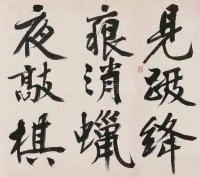 見跋絳
痕消蠟
夜敲棋